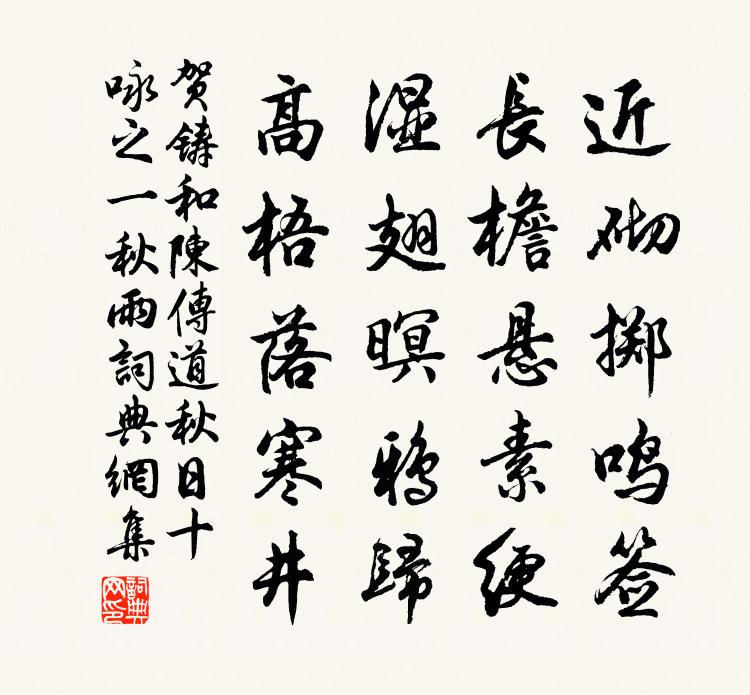 近砌掷鸣签
長檐悬素绠
湿翅暝鸦歸
高梧落寒井
贺鑄和陳傳道秋日十
咏之一秋雨詞典網集
詞典网印